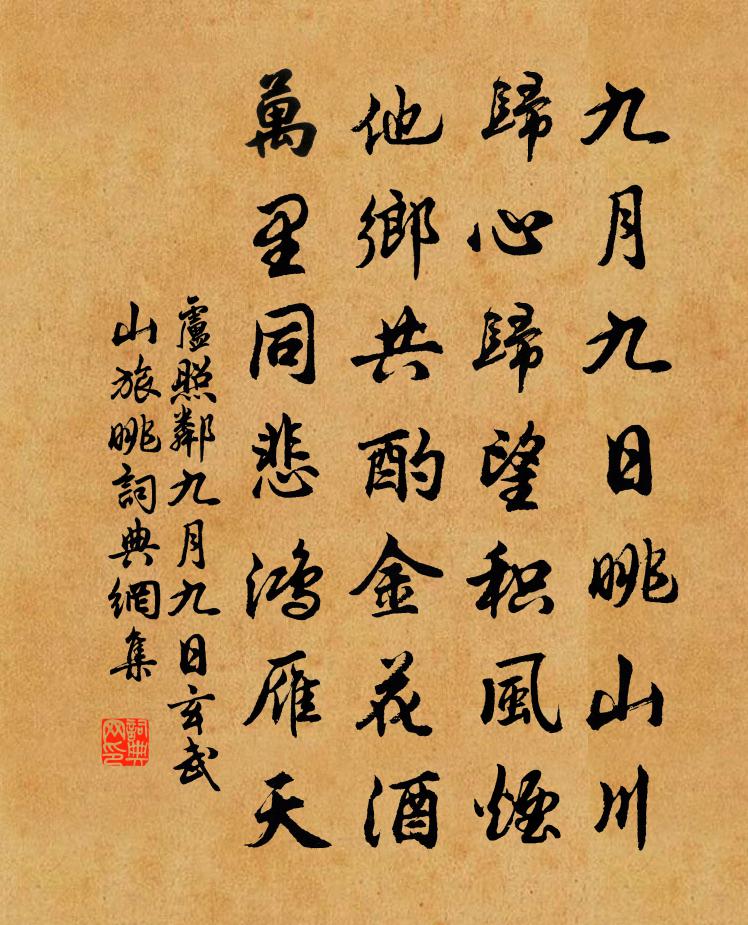 九月九日眺山川
歸心歸望积風煙
他鄉共酌金花酒
萬里同悲鴻雁天
盧照鄰九月九日玄武
山旅眺詞典網集
詞典
网印